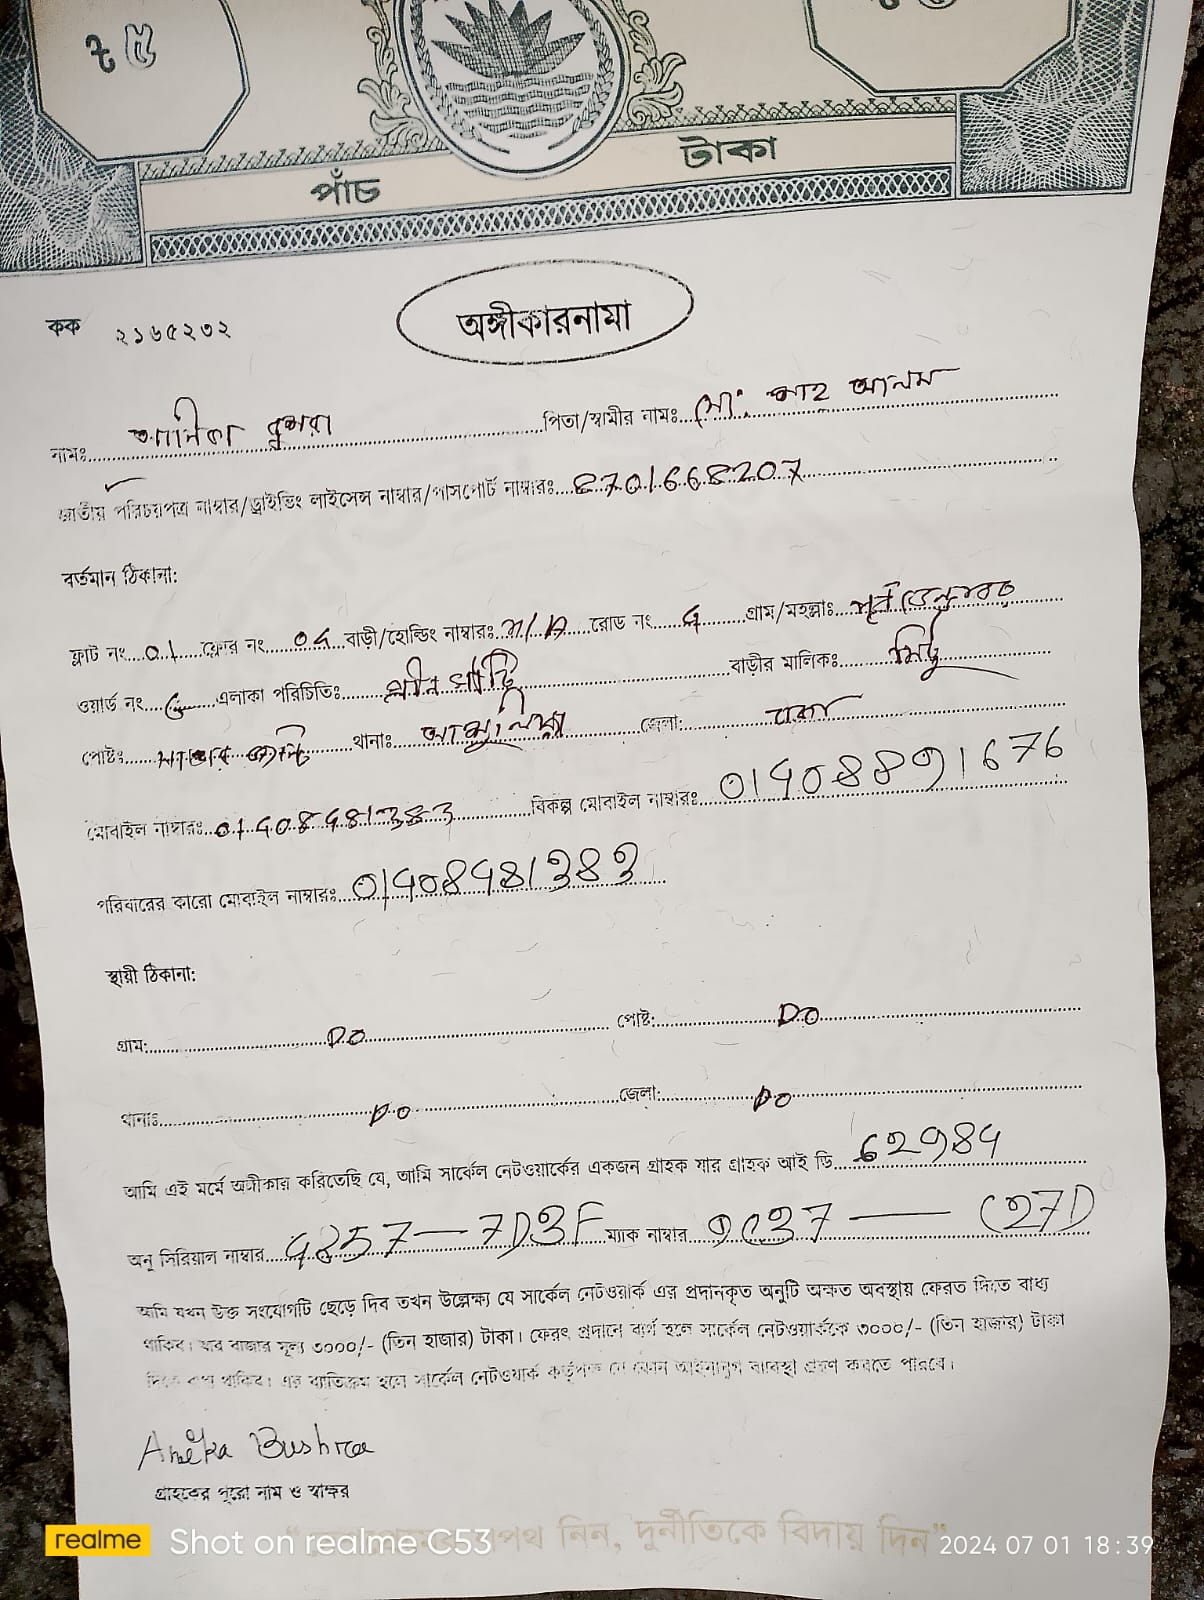 ৳ ৫
পাঁচ টাকা
কক ২১৬৫২৩২
অঙ্গীকারনামা
নামঃ আনিকা বুশরা পিতা/স্বামীর নামঃ মোঃ শাহ আলম
জাতীয় পরিচয়পত্র নাম্বার/ড্রাইভিং লাইসেন্স নাম্বার/পাসপোর্ট নাম্বারঃ 8701668207
বর্তমান ঠিকানা:
ফ্লাট নং 01 ফ্লোর নং 04 বাড়ী/হোল্ডিং নাম্বারঃ রোড নং 4 গ্রাম/মহল্লাঃ পূর্ব
ওয়ার্ড নং এলাকা পরিচিতিঃ গ্রীন সিটি বাড়ীর মালিকঃ মিন্টু
পোষ্টঃ থানাঃ জেলা: ঢাকা
মোবাইল নাম্বারঃ 01408481383 বিকল্প মোবাইল নাম্বারঃ 01408891676
পরিবারের কারো মোবাইল নাম্বারঃ 01408481383
স্থায়ী ঠিকানা:
গ্রাম: DO পোষ্ট: DO
থানাঃ DO জেলা: DO
আমি এই মর্মে অঙ্গীকার করিতেছি যে, আমি সার্কেল নেটওয়ার্কের একজন গ্রাহক যার গ্রাহক আই ডি 62984
অনু সিরিয়াল নাম্বার 4857 — 7D3F ম্যাক নাম্বার 9C37 — C27D
আমি যখন উক্ত সংযোগটি ছেড়ে দিব তখন উল্লেক্ষ্য যে সার্কেল নেটওয়ার্ক এর প্রদানকৃত অনুটি অক্ষত অবস্থায় ফেরত দিতে বাধ্য
থাকিব। যার বাজার মূল্য ৩০০০/- (তিন হাজার) টাকা। ফেরৎ প্রদানে ব্যর্থ হলে সার্কেল নেটওয়ার্ককে ৩০০০/- (তিন হাজার) টাকা
দিতে বাধ্য থাকিব। এর ব্যতিক্রম হলে সার্কেল নেটওয়ার্ক কর্তৃপক্ষ যে কোন আইনানুগ ব্যবস্থা গ্রহণ করতে পারবে।
Aneka Bushra
গ্রাহকের পুরো নাম ও স্বাক্ষর
শপথ নিন, দুর্নীতিকে বিদায় দিন"
realme Shot on realme C53 2024 07 01 18:39